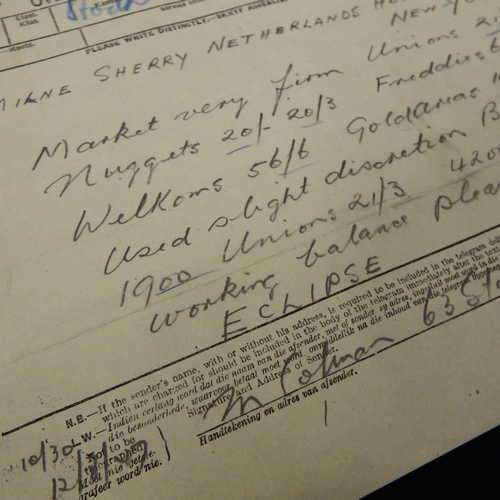 Stock
PLEASE WRITE DISTINCTLY.—
MILNE SHERRY NETHERLANDS
NEW YO
Market very firm Unions
Nuggets 20/- 20/3 Freddies
Welkoms 56/6 Goldarеas
Used slight discretion B
1900 Unions 21/3 4200
working balance pleas
ECLIPSE
N.B.—If the sender's name, with or without his address, is required to be included in the telegram
which are charged for should be included in the body of the telegram immediately after the text
L.W.—Indien verlang word dat die naam van die afsender, met of sonder sy adres, ingesluit moet word in die telegram
die besonderhede, waarvoor betaal moet word, onmiddellik na die inhoud van die telegram
Signature and Address of Sender.
Not to be
telegraphed.
Moet nie getele-
grafeer word nie.
10/30
M Colman 63
Handtekening en adres van afsender.